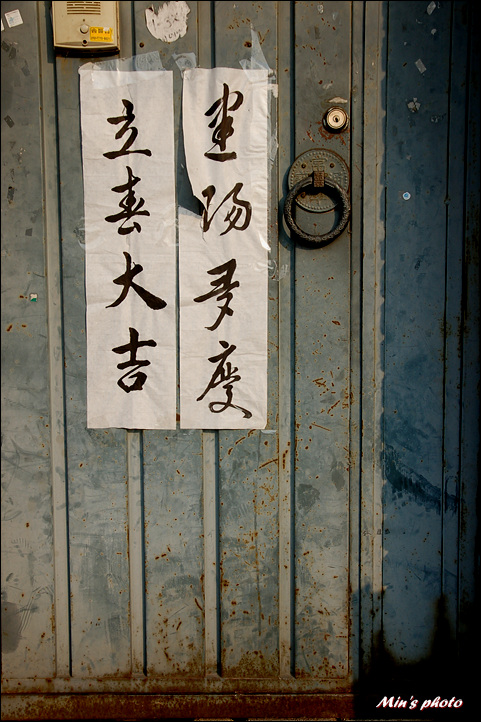 立春大吉
建陽多慶
Min's photo